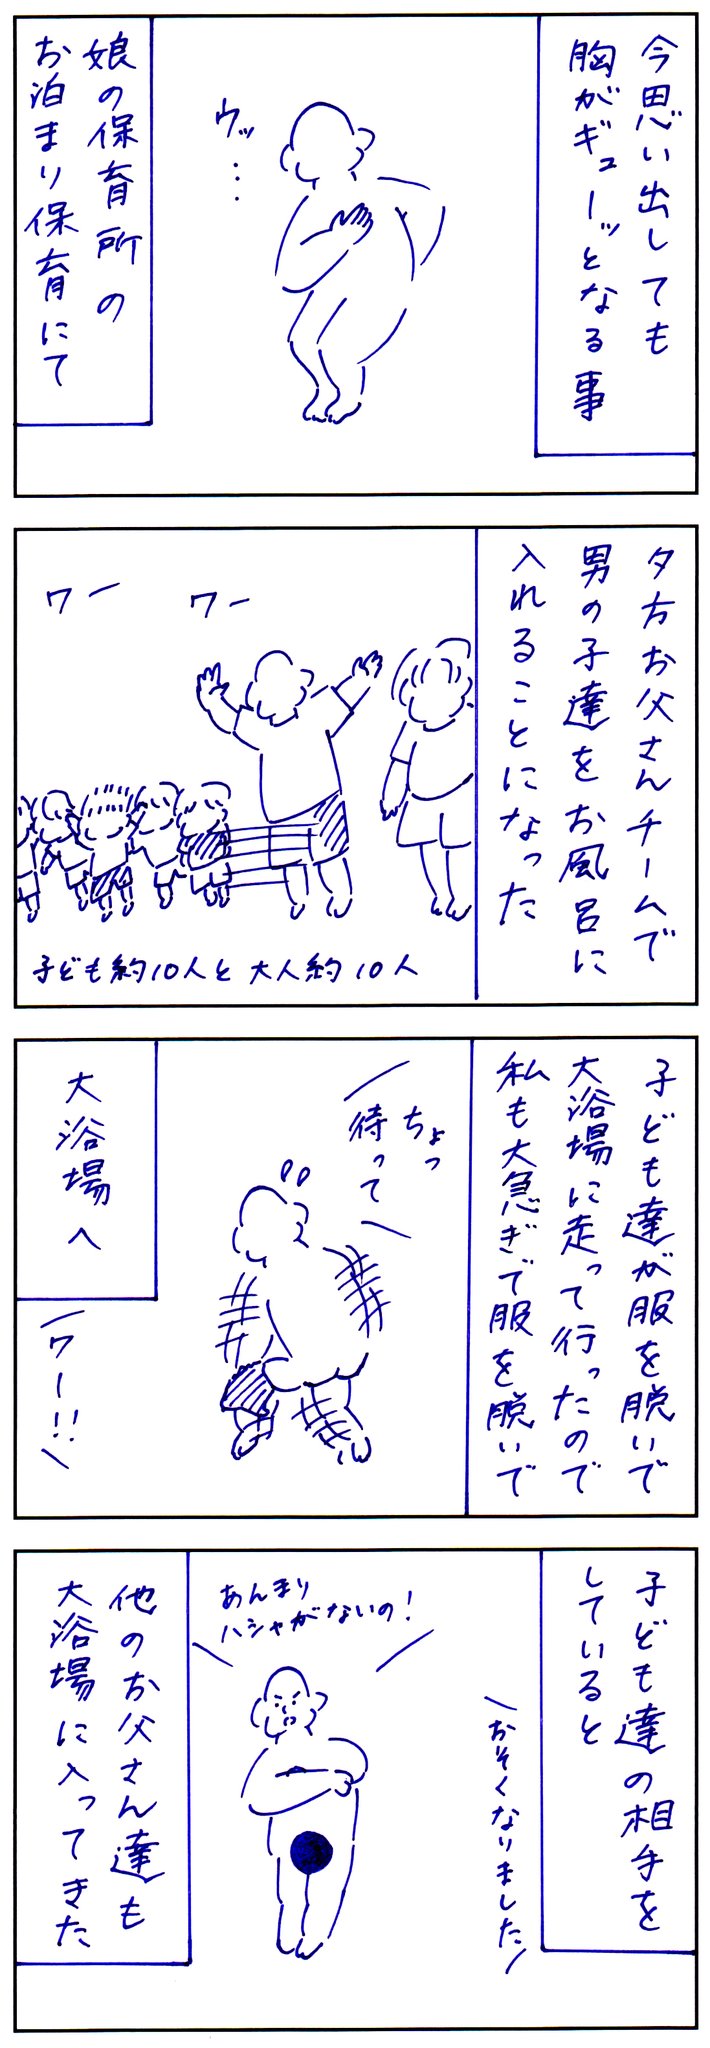 今思い出しても
胸がギューッとなる事
ウッ…
娘の保育所の
お泊まり保育にて
夕方お父さんチームで
男の子達をお風呂に
入れることになった
ワー
ワー
子ども約10人と大人約10人
子ども達が服を脱いで
大浴場に走って行ったので
私も大急ぎで服を脱いで
ちょっ
待って
大浴場へ
ワー!!
子ども達の相手を
していると
おそくなりました
あんまり
ハシャがないの!
他のお父さん達も
大浴場に入ってきた